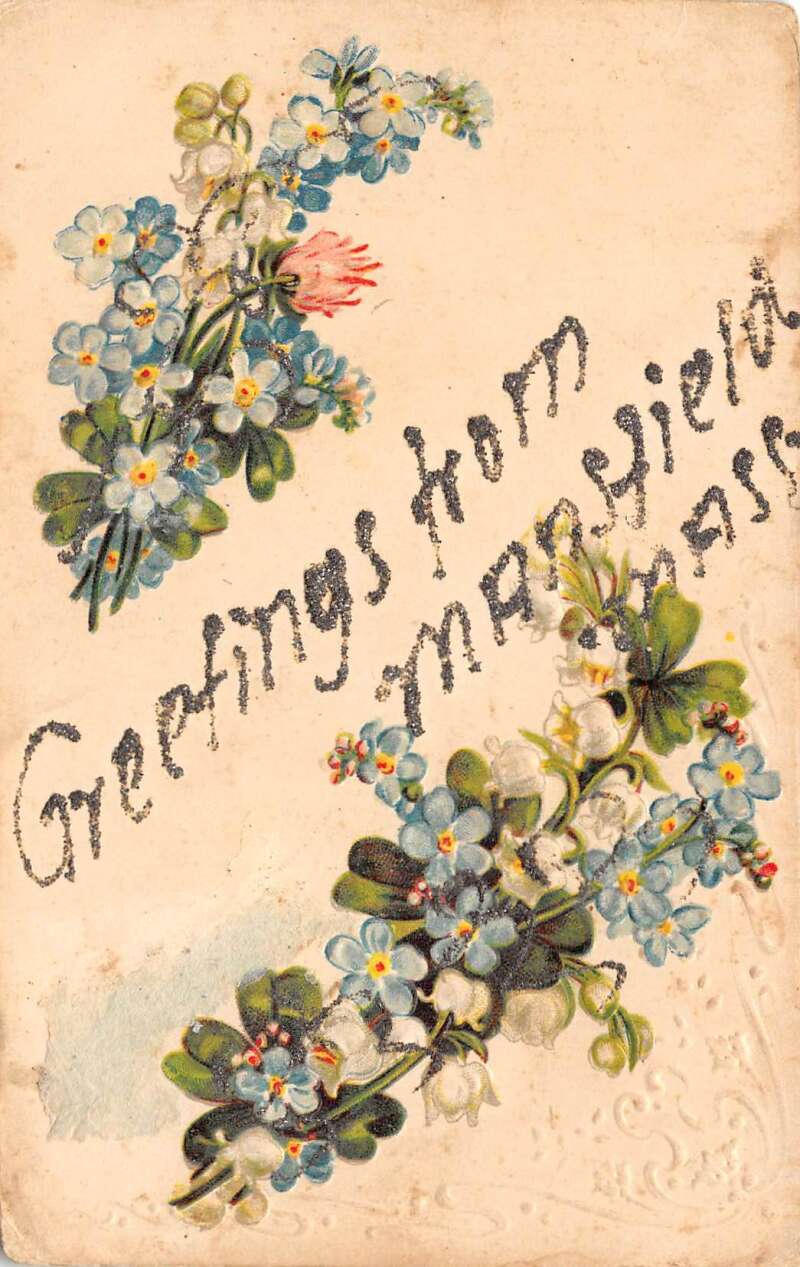 Greetings from
Mansfield
Mass